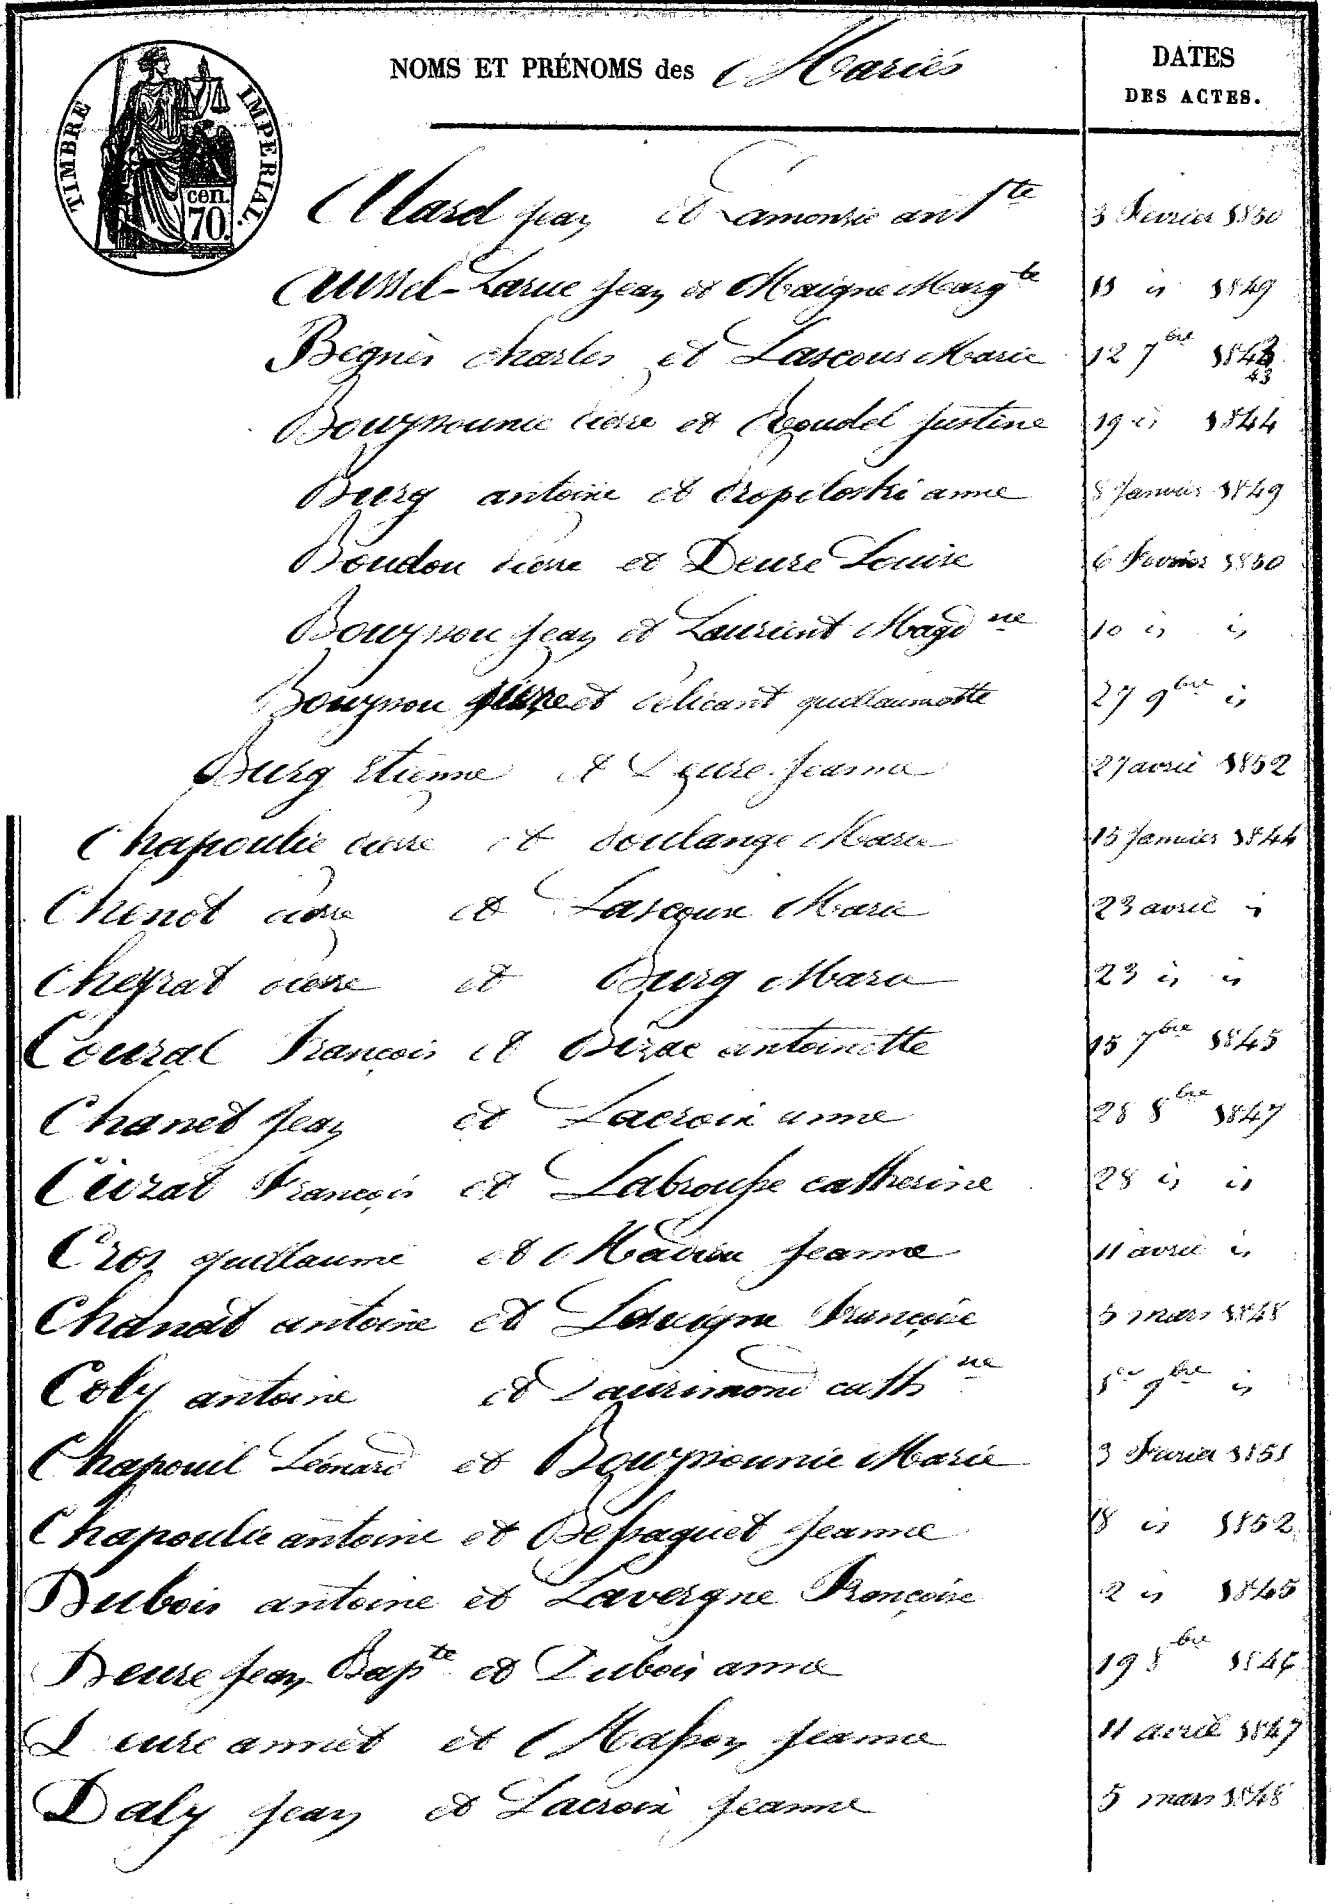 TIMBRE IMPERIAL.
cen. 70.
NOMS ET PRÉNOMS des Mariés
DATES DES ACTES.
Alard Jean et Lamonzie antte 3 Fevrier 1850
Aussel-Larue Jean et Maigne Margte 11 is 1849
Bégnès Charles et Lascoux Marie 12 7bre 1843 43
Bouyssounie Pierre et Roudel Justine 19 is 1844
Burg antoine et anne 8 Janvier 1849
Boudou Pierre et Deure Louise 6 Fevrier 1850
Bouyssou Jean et Laurient Magdne 10 is is
Bouyssou Pierre et Pélicant guillaumette 27 9bre is
Burg Etienne et Deure Jeanne 27 avril 1852
Chapoulie Pierre et Soulange Marie 15 Janvier 1844
Chenot Pierre et Lascoux Marie 23 avril is
Cheyrat Pierre et Burg Marie 23 is is
Couzal François et Birac antoinette 15 7bre 1845
Chanet Jean et Lacroix anne 28 8bre 1847
Civzat François et Labrousse catherine 28 is is
Cros guillaume et Jeanne 11 avril is
Chanat antoine et Lavigne Françoise 5 mars 1848
Coly antoine et Daurimond cathne 1er 9bre is
Chapouil Léonard et Bouyssounie Marie 3 Fevrier 1851
Chapoulie antoine et Bessaguet Jeanne 18 is 1852
Dubois antoine et Lavergne Françoise 2 is 1845
Deure Jean Bapte et Dubois anne 19 8bre 1846
Deure annet et Masson Jeanne 11 avril 1847
Daly Jean et Lacroix Jeanne 5 mars 1848